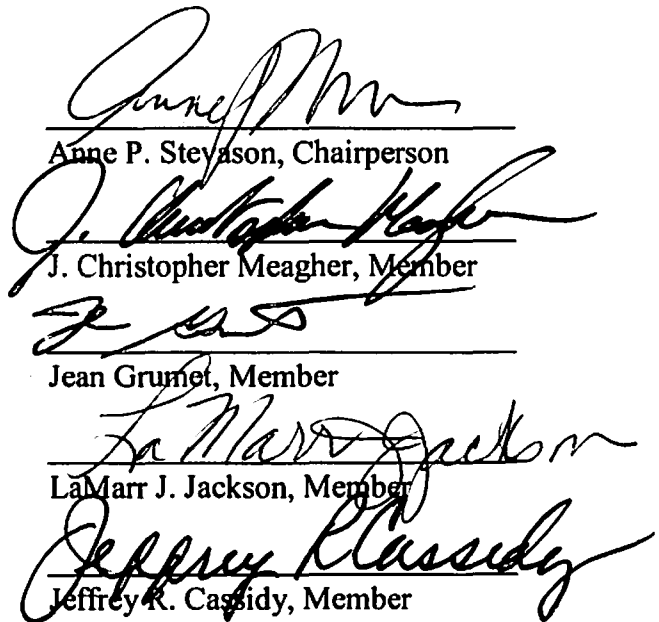 Anne P. Stevason, Chairperson
J. Christopher Meagher
J. Christopher Meagher, Member
Jean Grumet, Member
LaMarr J Jackson
LaMarr J. Jackson, Member
Jeffrey R Cassidy
Jeffrey R. Cassidy, Member